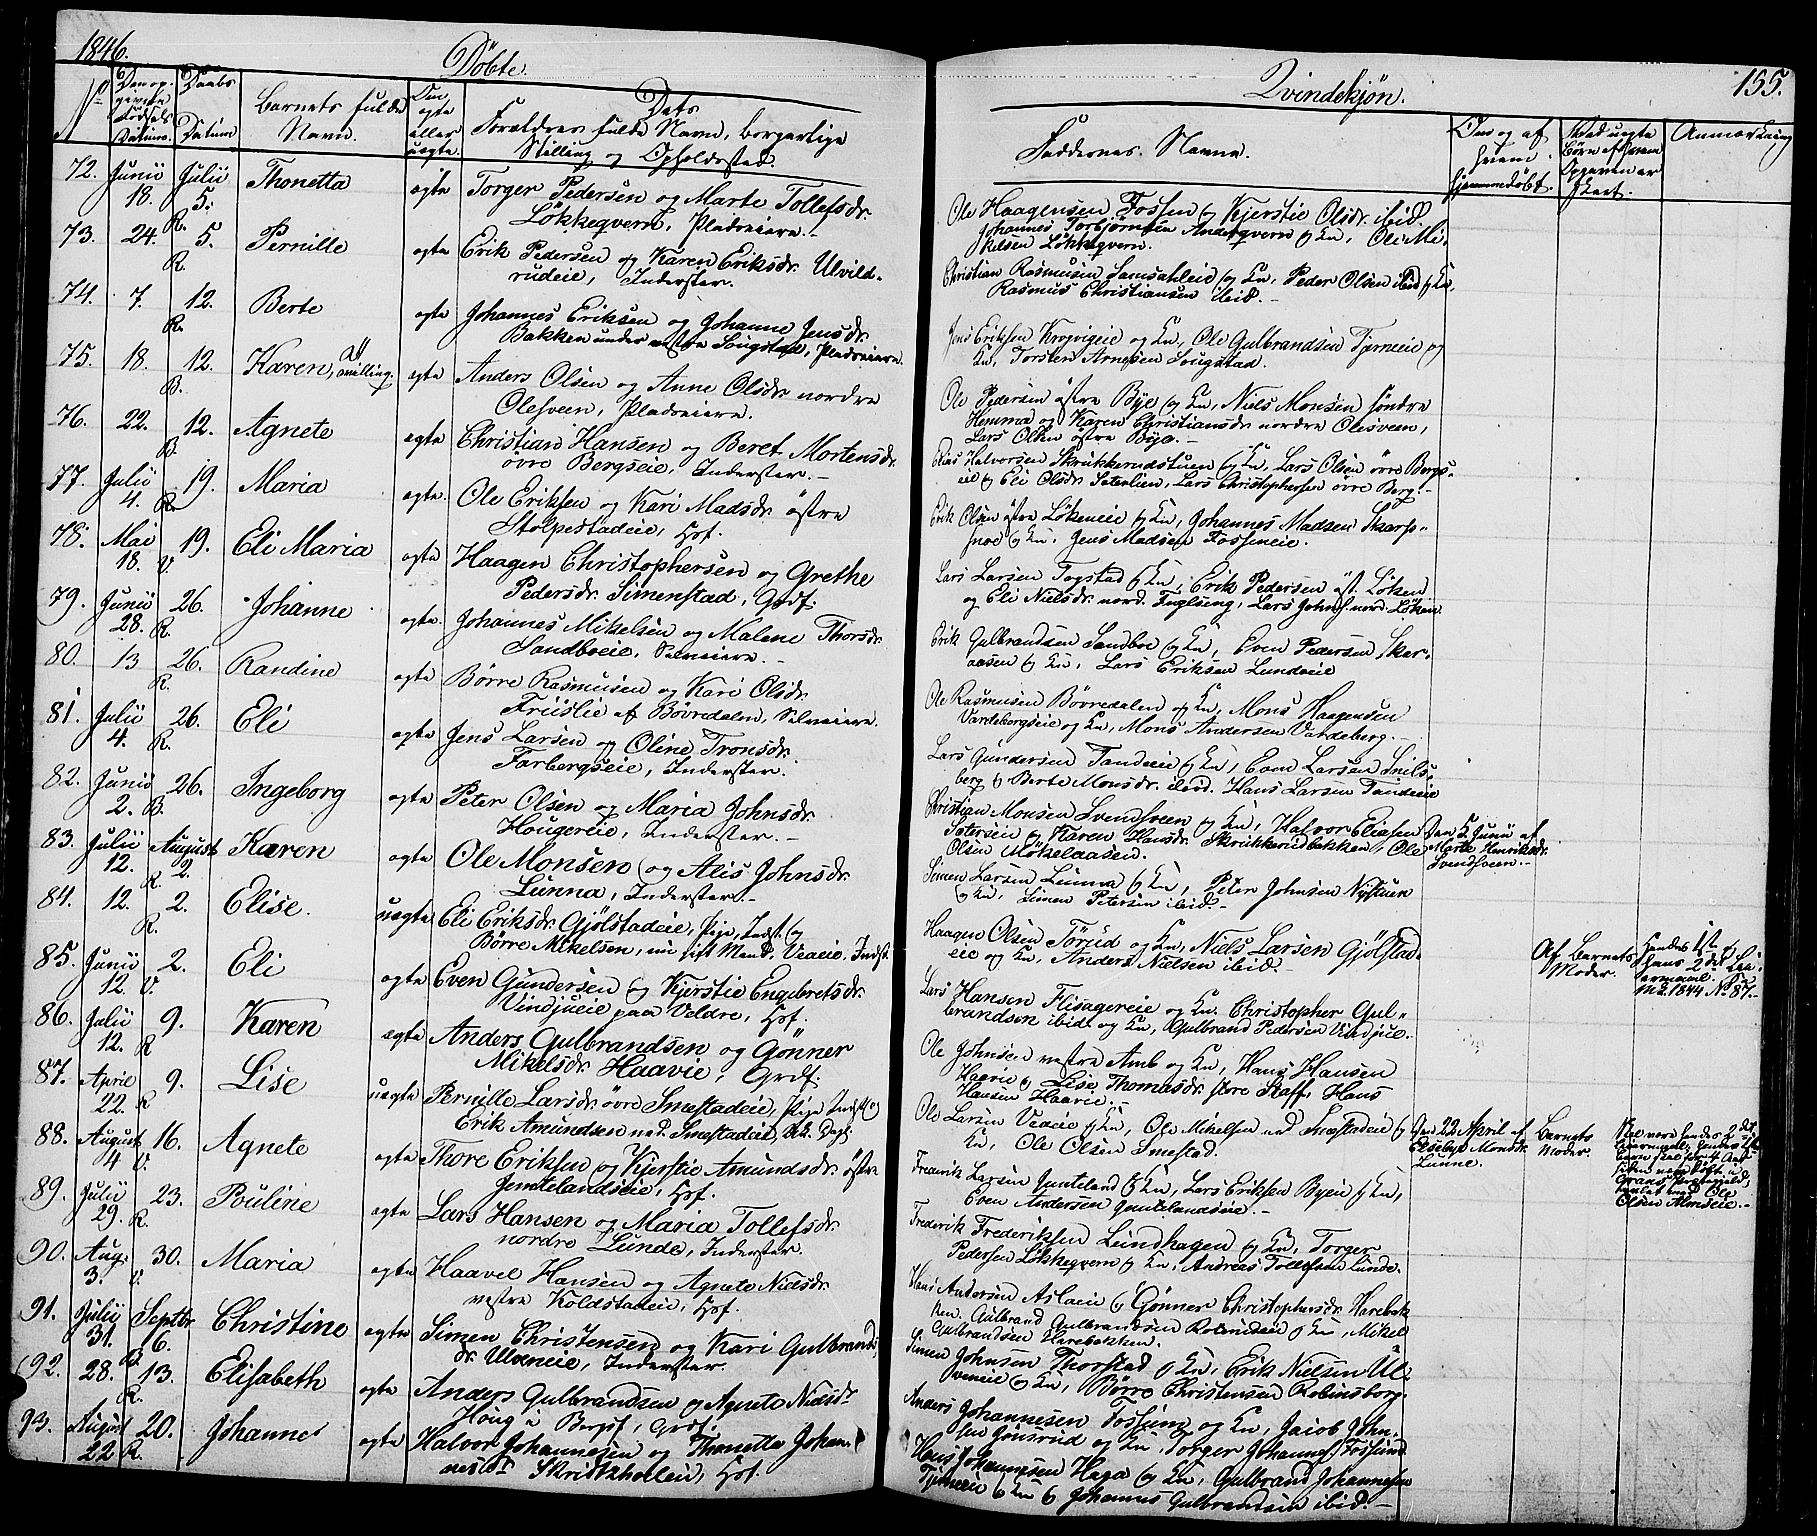 1846.
Döbte.
Qvindekjön.
155.
No
Den opgivne Födsels Datum.
Daabs Datum
Barnets fulde Navn.
Om ægte eller uægte.
Dets Forældres fulde Navn, borgerlige Stilling og Opholdssted.
Faddernes Navne.
Om og af hvem hjemmedöbt.
Ved uægte Börn af hvem Opgaven er skeet.
Anmærkning
72. Junii 18. Julii 5. R. Thonetta ægte Torger Pedersen og Marte Tollefsdr. Lökkeqvern, Pladseiere.
Ole Haagensen Fossen og Kjerstie Olsdr. ibid Johannes Torbjörnsen Anderqvern og Kn, Ole Mikelsen Lökkeqvern.
73. 24. 5. R. Pernille ægte Erik Pedersen og Karen Eriksdr. Ulvildrudeie, Inderster.
Christian Rasmusen og Kn, Peder Olsen ibid og Kn, Rasmus Christiansen ibid.
74. 7. 12. R. Berte ægte Johannes Eriksen og Johanne Jensdr. Bakken under vestre Sougstad, Pladseiere.
Jens Eriksen Krogvigeie og Kn, Ole Gulbrandsen Tjerneie og Kn, Torsten Arnesen Sougstad.
75. 18. 12. B. Karen, Tvilling. ægte Anders Olsen og Anne Olsdr. nordre Olesveen, Pladseiere.
Ole Pedersen östre Bye og Kn, Niels Monsen söndre Hemma og Karen Christiansdr. nordre Olesveen, Lars Olsen östre Bye.
76. 22. 12. B. Agnete ægte Christian Hansen og Beret Mortensdr. övre Bergseie, Inderster.
Elias Halvorsen Skrukkerudstuen og Kn, Lars Olsen övre Bergseie og Eli Olsdr. Seterlien, Lars Christophersen övre Berg.
77. Julii 4. 19. R. Maria ægte Ole Eriksen og Kari Madsdr. östre Stolpestadeie, Hsf.
Erik Olsen östre Lökeneie og Kn, Johannes Madsen Skarpsnoe og Kn, Jens Madsen Fosseneie.
78. Mai 18. 19. V. Eli Maria ægte Haagen Christophersen og Grethe Pedersdr. Simenstad, Grdf.
Lars Larsen Togstad og Kn, Erik Pedersen öst. Löken og Eli Nielsdr. nord. Fuglseng, Lars Johns. nord. Löken.
79. Junii 28. 26. R. Johanne ægte Johannes Mikelsen og Malene Thorsdr. Sandboeie, Selveiere.
Erik Gulbrandsen Sandboe og Kn, Even Pedersen Skaraasen og Kn, Lars Eriksen Lundeeie
80. 13 26. R. Randine ægte Börre Rasmusen og Kari Olsdr. Friislie af Bövredalen, Selveiere.
Ole Rasmusen Bövredalen og Kn, Mons Haagensen Vardebergseie og Kn, Mons Andersen Vardeberg.
81. Julii 4. 26. R. Eli ægte Jens Larsen og Oline Tronsdr. Farbergseie, Inderster.
Lars Gundersen Tandeeie og Kn, Even Larsen Snilsberg og Berte Monsdr. ibid. Hans Larsen Tandeeie
82. Junii 2. 26. B. Ingeborg ægte Peter Olsen og Maria Johnsdr. Hougereie, Inderster.
Christian Monsen Svendsveen og Kn, Halvor Eliasen Sæterseie og Karen Hansdr. Skrukkerudbakken, Ole Olsen Mökelaasen.
Den 5 Junii af Marte Henriksdr. Svendsveen.
83. Julii 12. August 2. R. Karen ægte Ole Monsen og Alis Johnsdr. Lunna, Inderster.
Simen Larsen Lunna og Kn, Peter Johnsen Nystuen og Kn, Simen Petersen ibid.
84. 12. 2. R. Elise. uægte Eli Eriksdr. Gjölstadeie, Pige, Indst. og Börre Mikelsen, nu gift Mand, Veaeie, Indst.
Haagen Olsen Törud og Kn, Niels Larsen Gjölstadeie og Kn, Anders Nielsen ibid.
Af Barnets Moder.
Hendes 1ste og hans 2det Leiermaal. M. L. 1844 No 87.
85. Junii 12. 2. V. Eli ægte Even Gundersen og Kjerstie Engebretsdr. Vindjueie paa Veldre, Hsf.
Lars Hansen Flisagereie og Kn. Christopher Gulbrandsen ibid og Kn, Gulbrand Pedersen Vindjue.
86. Julii 12. 9. R Karen ægte Anders Gulbrandsen og Gönner Mikelsdr. Haavie, Grdf.
Ole Johnsen vestre Amb og Kn, Hans Hansen Haavie og Lise Thomasdr. store Staff, Hans Hansen Haavie.
87. April 22. 9. R Lise uægte Pernille Larsdr. övre Smestadeie, Pige Indst og Erik Amundsen ned. Smestadeie,
Ole Larsen Veaeie og Kn, Ole Mikelsen ned Smestadeie og Kn, Ole Olsen Smestad.
Den 22 April af Elsebye Monsdr. Lunne.
Barnets Moder.
Skal være hendes 2det Leiermaal, Olsen Almseie.
88. August 4 16. V. Agnete ægte Thore Eriksen og Kjerstie Amundsdr. östre Jemtelandseie, Hsf.
Frederik Larsen Jemteland og Kn, Lars Eriksen Byeie og Kn, Even Andersen Jemtelandseie.
89. Julii 29. 23. R. Pouline ægte Lars Hansen og Maria Tollefsdr. nordre Lunde, Inderster.
Frederik Frederiksen Lundhagen og Kn, Torger Pedersen Lökkeqvern og Kn, Andreas Tollefsen Lunde.
90. Aug. 3. 30. V. Maria ægte Haavel Hansen og Agnete Nielsdr. vestre Koldstadeie, Hsf.
Hans Andersen Aslaeie og Gönner Christophersdr. Harebakken. Gulbrand Gulbrandsen og Kn, Mikel Gulbrandsen Harebakken.
91. Julii 31. Septbr. 6. B. Christine ægte Simen Christensen og Kari Gulbrandsdr. Ulveneie, Inderster.
Simen Johnsen Thorstad og Kn, Erik Nielsen Ulveneie og Kn, Börre Christensen Robinsborg.
92. 28. 13. R. Elisabeth ægte Anders Gulbrandsen og Agnete Nielsdr. Houg i Bergst, Grdf.
Anders Johannesen Fossum og Kn, Jacob Johnsen Gönsrud og Kn, Torger Johannes. Fossum.
93. August 22 20. R. Johannes ægte Halvor Johannesen og Thonetta Johannesdr Skristkholeie, Hsf.
Hans Johannesen Haga og Kn, Gulbrand Johannesen Tjerneeie og Kn og Johannes Gulbrandsen ibid.